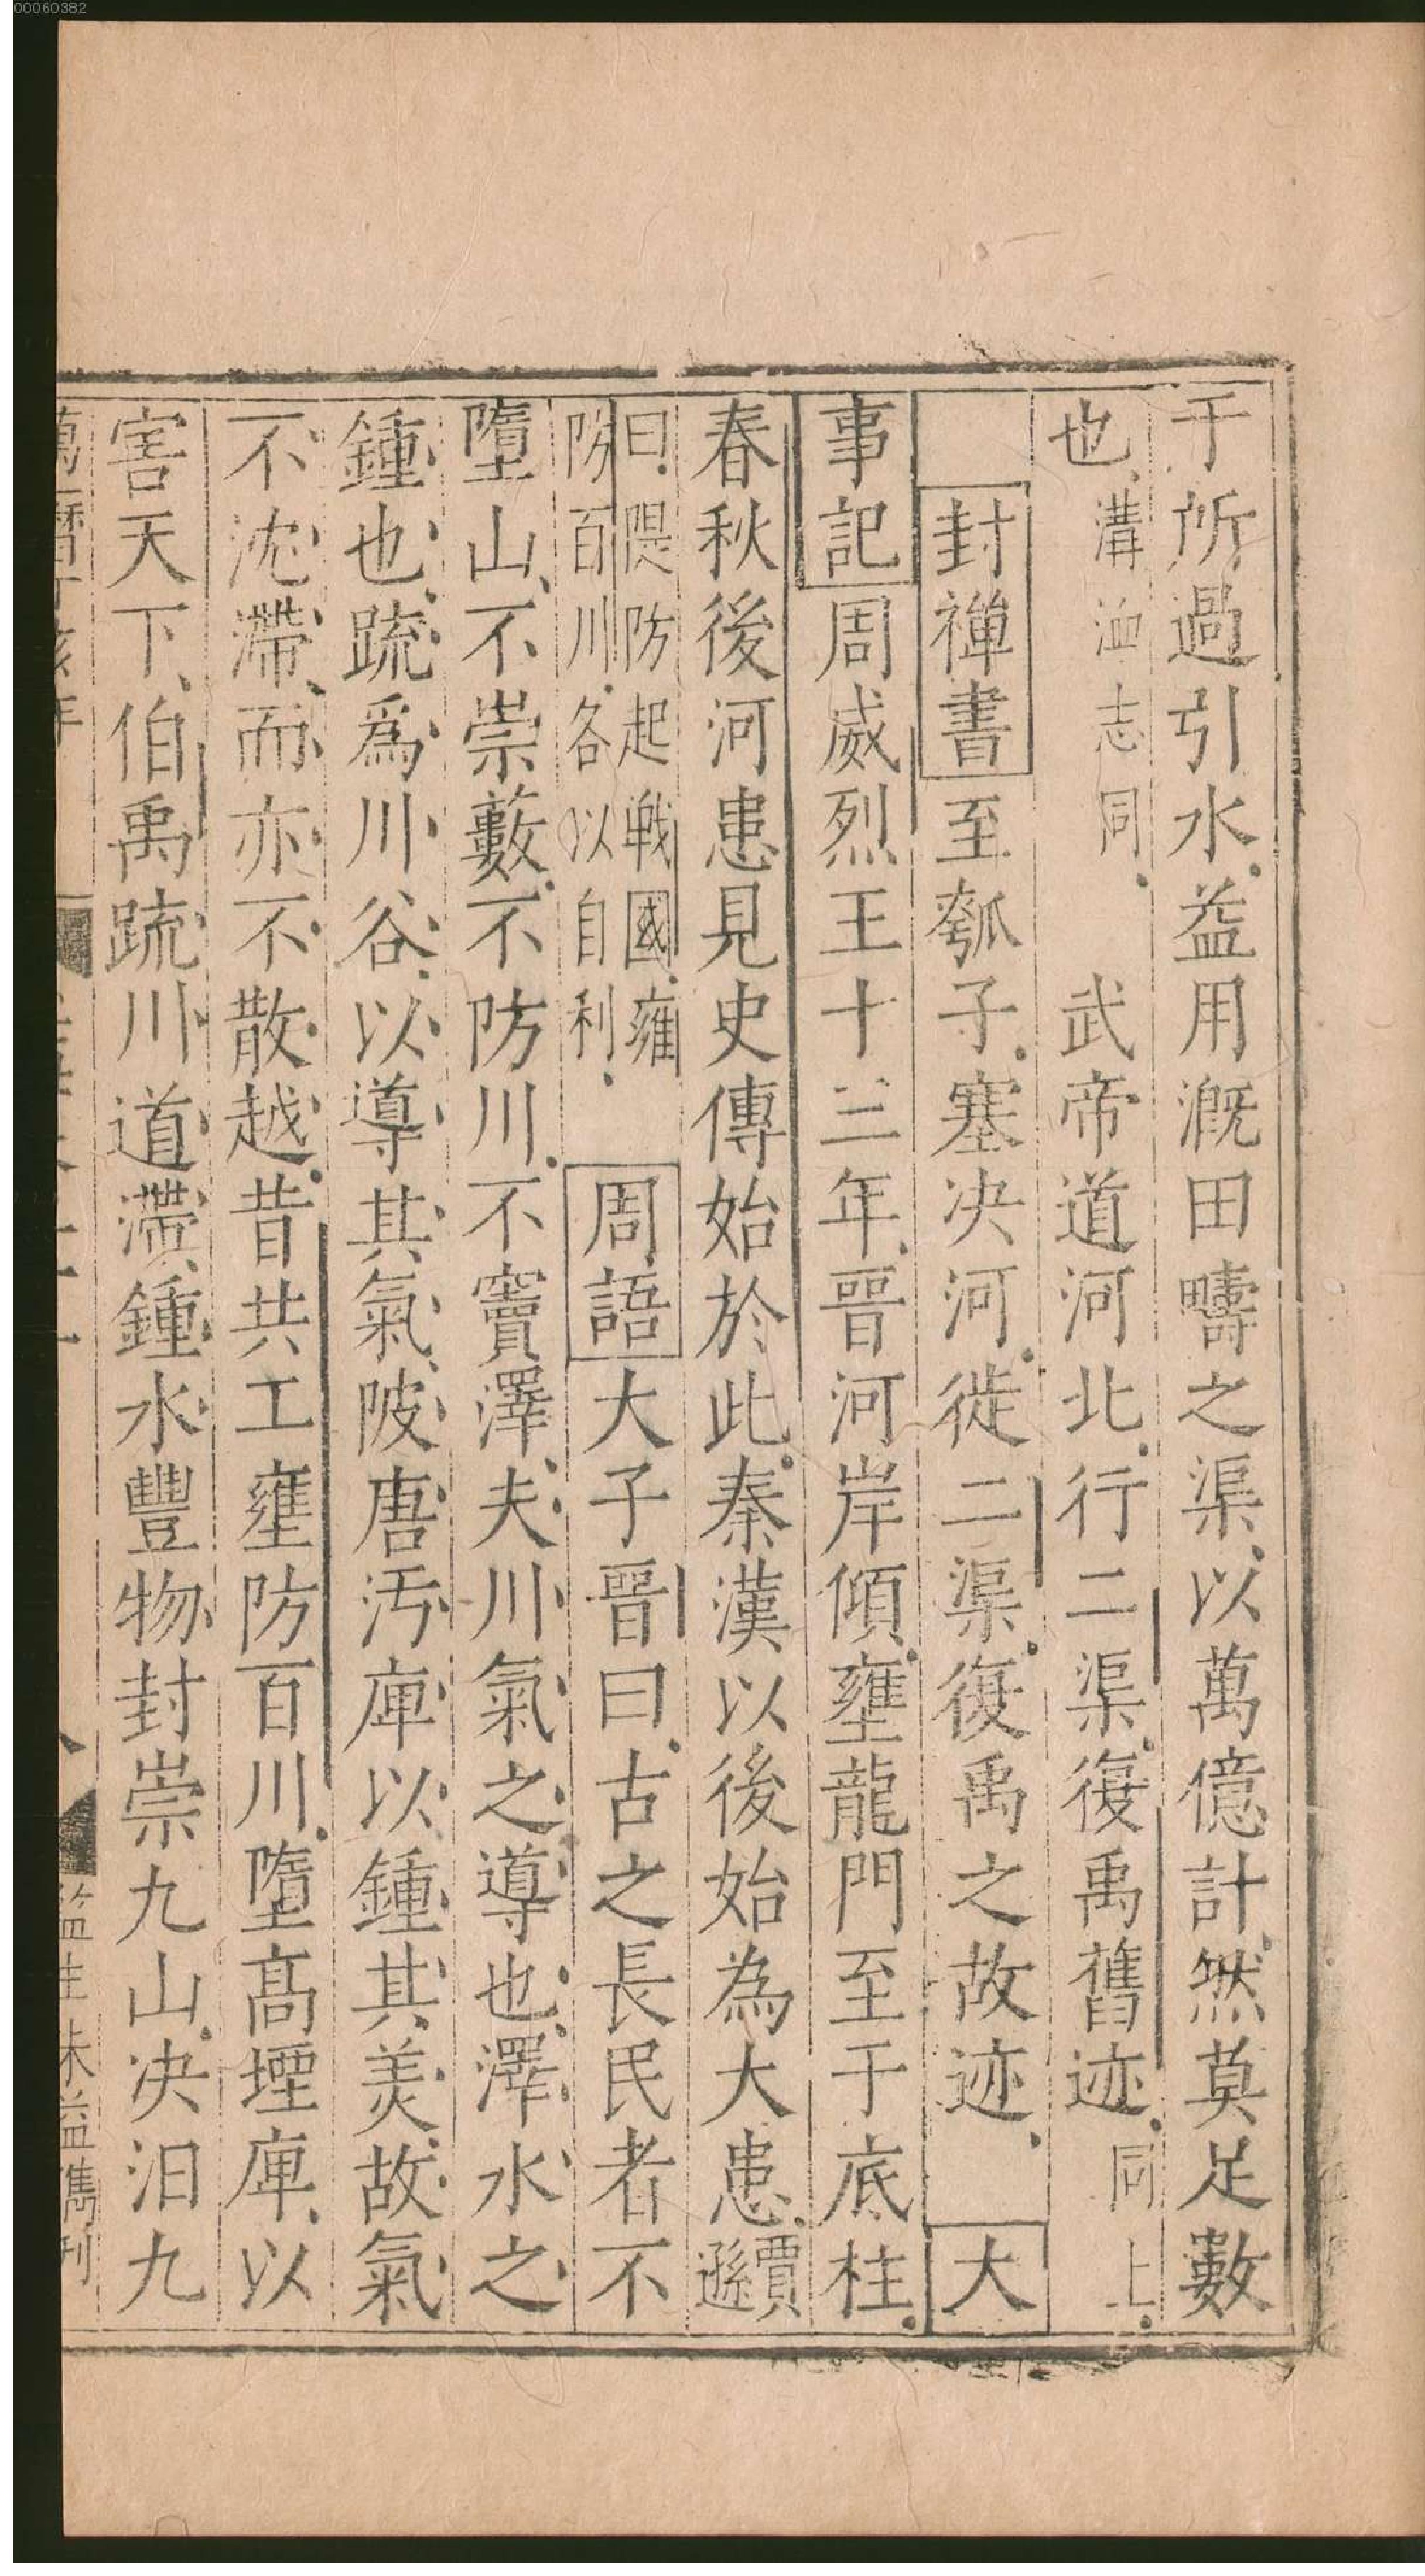 00060382
于所過引水益用漑田疇之渠以萬億計然莫足數
也溝洫志同 武帝道河北行二渠復禹舊迹同上
封禪書至瓠子塞决河徙二渠復禹之故迹 大
事記周威烈王十三年晉河岸傾壅龍門至于底柱
春秋後河患見史傳始於此秦漢以後始為大患賈遜
曰隄防起戰國雍防百川各以自利 周語大子晉曰古之長民者不
墮山不崇藪不防川不竇澤夫川氣之導也澤水之
鍾也疏爲川谷以導其氣陂唐汚庳以鍾其美故氣
不沈滯而亦不散越昔共工壅防百川墮髙堙庳以
害天下伯禹疏川道滯鍾水豐物封崇九山决汨九